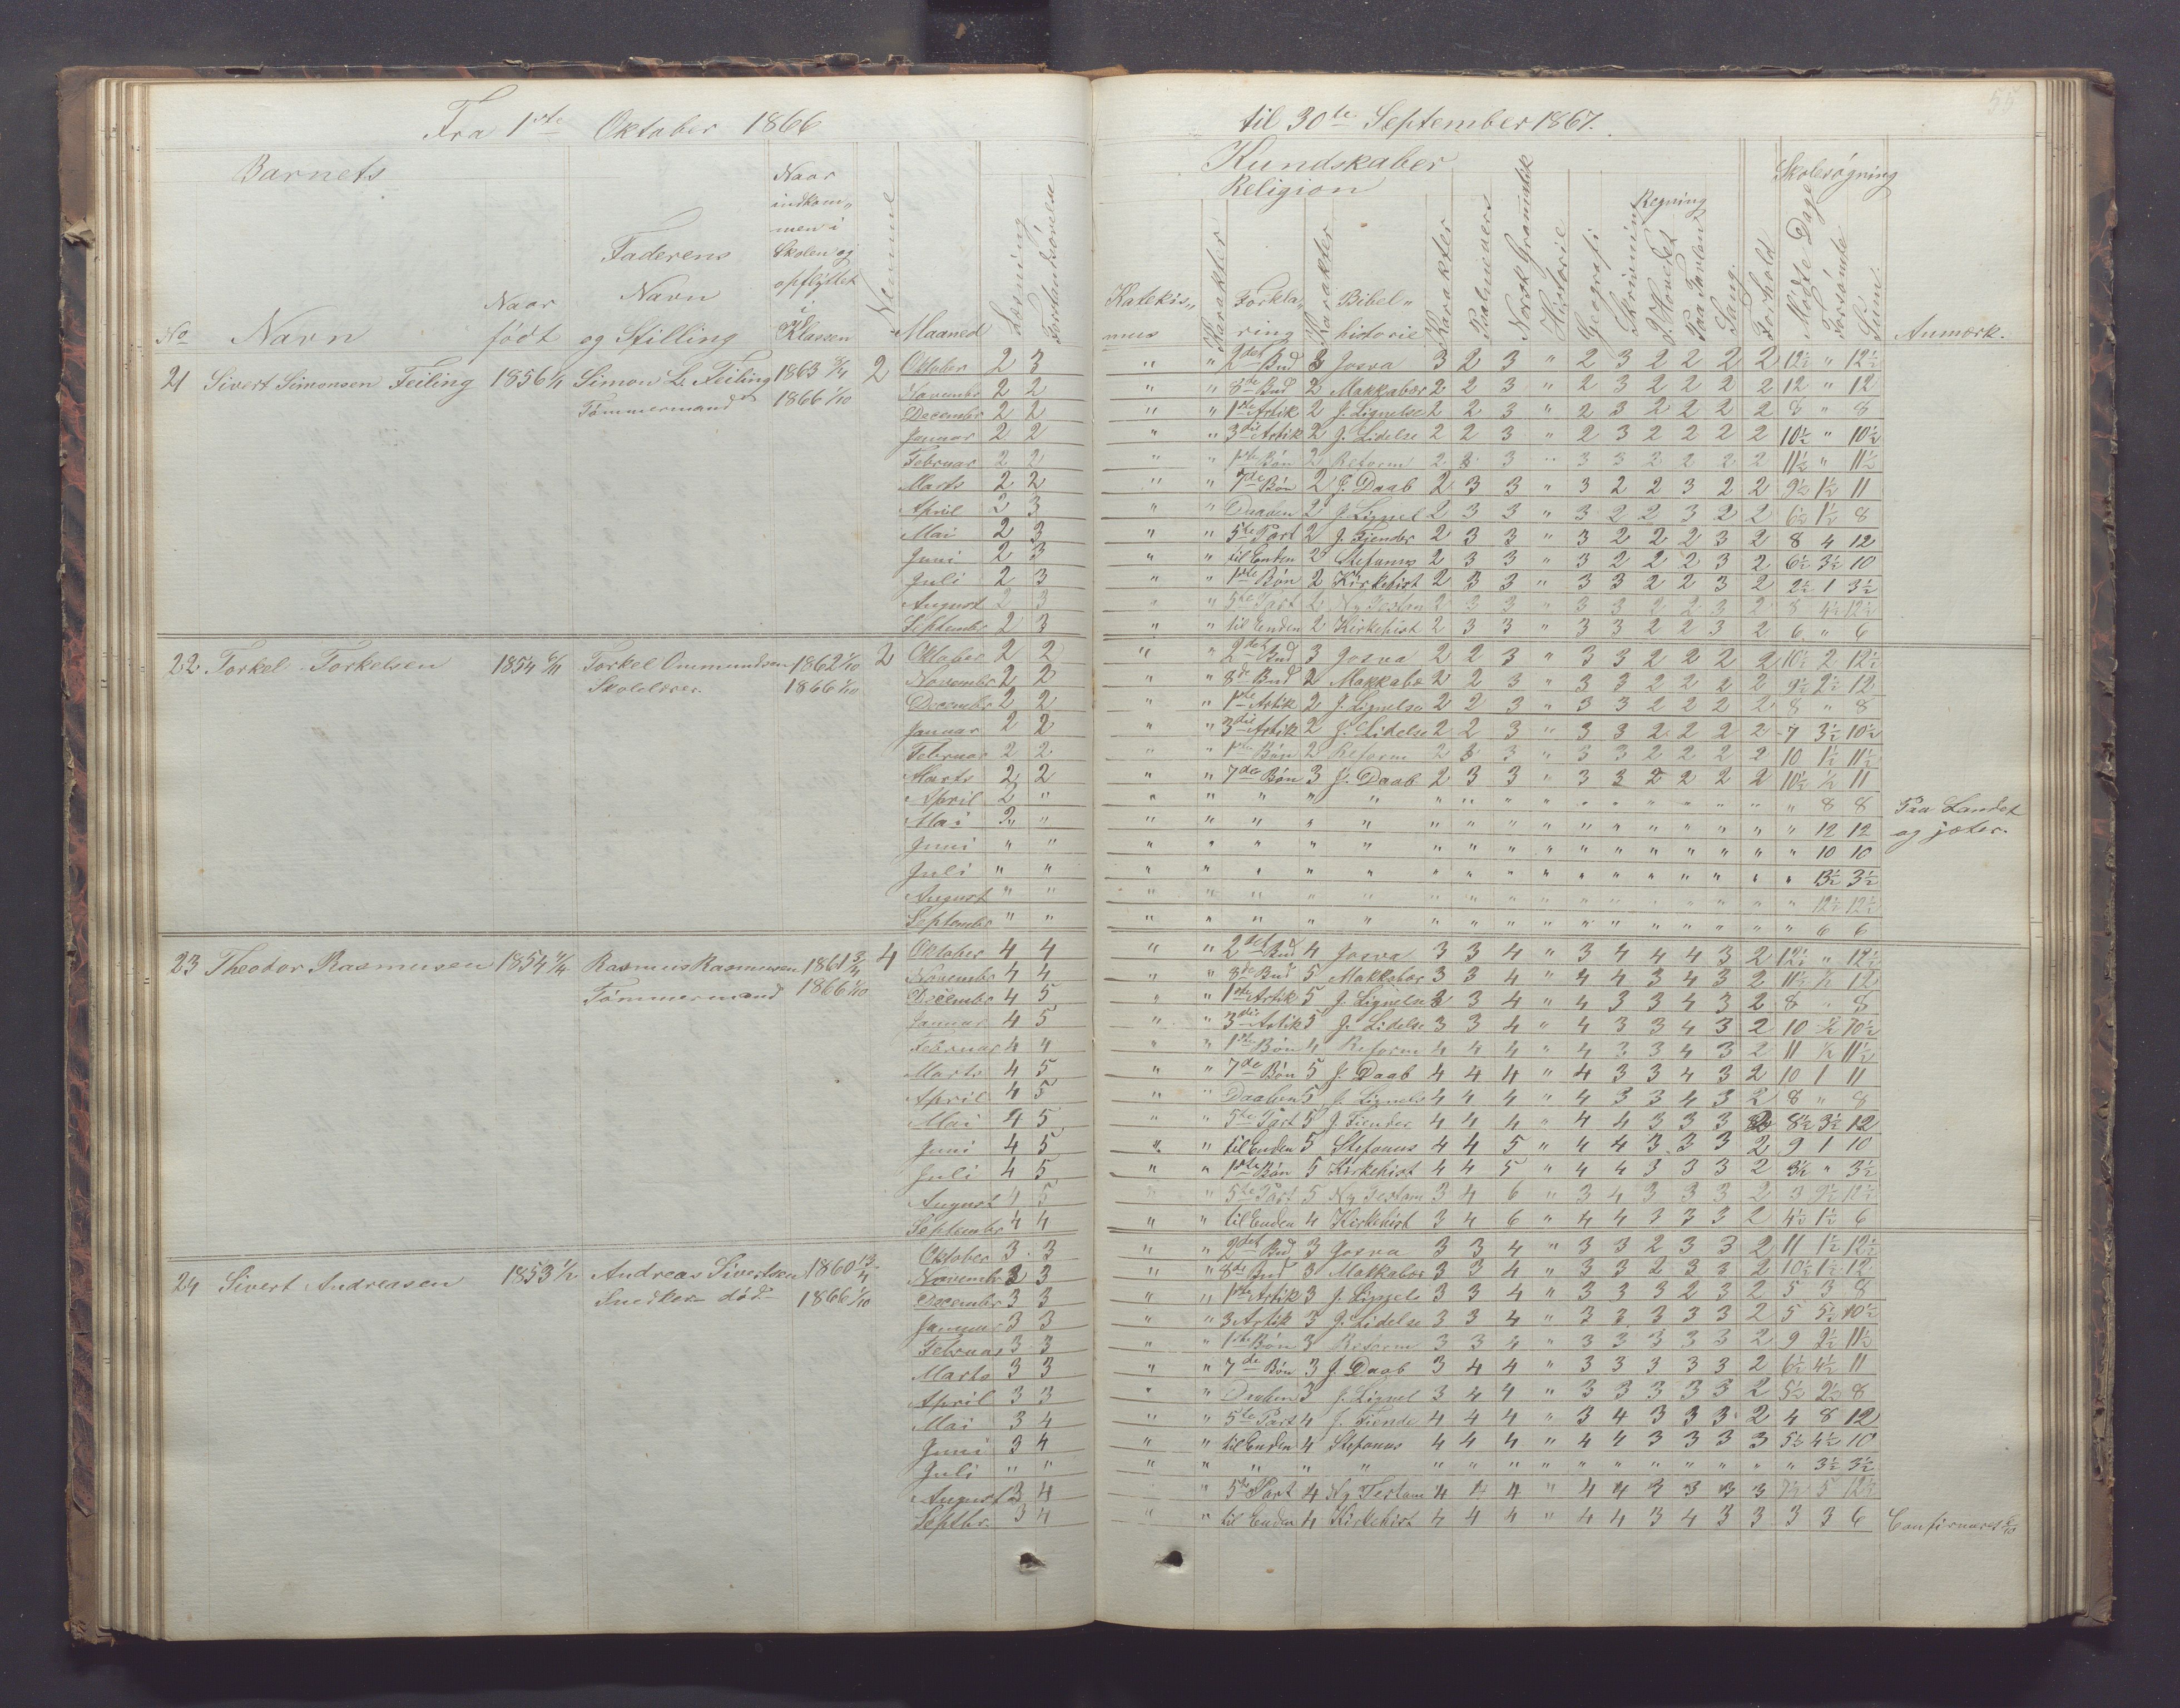 Fra 1ste Oktober 1866 til 30te September 1867.
55
Barnets
Kundskaber
Skolesøgning
Religion
Regning
No Navn
Naar født
Faderens Navn og Stilling
Naar indkommen i Skolen og opflyttet i Klassen
Nummer
Maaned
Læsning
Forstandsøvelse
Katekismus
Karakter
Forklaring
Karakter
Bibelhistorie
Karakter
Psalmevers
Norsk Gramatik
Historie
Geografi
Skrivning
I Hovedet
Paa Tavlen
Sang.
Forhold
Mødte Dage
Forsømte
Sum.
Anmærk.
21 Sivert Simonsen Feiling 1856 Simon L. Feiling 1863 2 Oktober 2 3 " " 2det Bud 3 Josva 3 2 3 " 2 3 2 2 2 2 12½ " 12½
Tømmermand 1866 1/10 Novembr 2 2 " " 8de Bud 2 Makkabær 2 2 3 " 2 3 2 2 2 2 12 " 12
Decembr 2 2 " " 1ste Artik 2 J. Lignelse 2 2 3 " 2 3 2 2 2 2 8 " 8
Januar 2 2 " " 3die Artik 2 J. Lidelse 2 2 3 " 2 3 2 2 2 2 10½ " 10½
Februar 2 2 " " 1ste Bøn 2 Reform 2 3 3 " 3 3 2 2 2 2 11½ " 11½
Marts 2 2 " " 7de Bøn 2 J. Daab 2 3 3 " 3 2 2 3 2 2 9½ 1½ 11
April 2 3 " " Daaben 2 J. Lignel 2 3 3 " 3 2 2 3 2 2 6½ 1½ 8
Mai 2 3 " " 5te Part 2 J. Fiender 2 3 3 " 3 2 2 2 3 2 8 4 12
Juni 2 3 " " til Enden 2 Stefanus 2 3 3 " 3 2 2 2 3 2 6½ 3½ 10
Juli 2 3 " " 1ste Bøn 2 Kirkehist 2 3 3 " 3 3 2 2 3 2 2½ 1 3½
August 2 3 " " 5te Part 2 Ny Testam 2 3 3 " 3 3 2 2 3 2 8 4½ 12½
Septembr 2 3 " " til Enden 2 Kirkehist 2 3 3 " 3 3 2 2 3 2 6 " 6
22 Torkel Torkelsen 1854 Torkel Ommundsen 1862 1/10 2 Oktober 2 2 " " 2det Bud 3 Josva 2 2 3 " 3 3 2 2 2 2 10½ 2 12½
Skolelærer. 1866 1/10 Novembr 2 2 " " 8de Bud 2 Makkabæ 2 2 3 " 3 3 2 2 2 2 9½ 2½ 12
Decembr 2 2 " " 1ste Artik 2 J. Lignelse 2 2 3 " 3 3 2 2 2 2 8 " 8
Januar 2 2 " " 3die Artik 2 J. Lidelse 2 2 3 " 3 3 2 2 2 2 7 3½ 10½
Februar 2 2 " " 1ste Bøn 2 Reform 2 3 3 " 3 3 2 2 2 2 10 1½ 11½
Marts 2 2 " " 7de Bøn 3 J. Daab 2 3 3 " 3 3 2 2 2 2 10½ ½ 11
April 2 " " " " " " " " " " " " " " " " " 8 8 Paa Landet
Mai " " " " " " " " " " " " " " " " " 12 12 og jæter.
Juni " " " " " " " " " " " " " " " " " " 10 10
Juli " " " " " " " " " " " " " " " " " " 3½ 3½
August " " " " " " " " " " " " " " " " " " 12½ 12½
Septembr " " " " " " " " " " " " " " " " " " 6 6
23 Theodor Rasmusen 1854 Rasmus Rasmusen 1861 4 Oktober 4 4 " " 2det Bud 4 Josva 3 3 4 " 3 4 4 4 3 2 12½ " 12½
Tømmermand 1866 1/10 Novembr 4 4 " " 8de Bud 5 Makkabær 3 3 4 " 4 4 3 4 3 2 11½ ½ 12
Decembr 4 5 " " 1ste Artik 5 J. Lignelse 3 3 4 " 4 3 3 4 3 2 8 " 8
Januar 4 5 " " 3die Artik 5 J. Lidelse 3 3 4 " 4 3 3 4 3 2 10 ½ 10½
Februar 4 4 " " 1ste Bøn 4 Reform 4 4 4 " 4 3 3 4 3 2 11 ½ 11½
Marts 4 5 " " 7de Bøn 5 J. Daab 4 4 4 " 4 3 3 4 3 2 10 1 11
April 4 5 " " Daaben 5 J. Lignels 4 4 4 " 4 3 3 4 3 2 8 " 8
Mai 4 5 " " 5te Part 5 J. Fiender 4 4 4 " 4 4 3 3 3 2 8½ 3½ 12
Juni 4 5 " " til Enden 5 Stefanus 4 4 5 " 4 4 3 3 3 2 9 1 10
Juli 4 5 " " 1ste Bøn 5 Kirkehist 4 4 5 " 4 4 3 3 3 2 3½ " 3½
August 4 5 " " 5te Part 5 Ny Testam 3 4 6 " 3 4 3 3 3 2 3 9½ 12½
Septembr 4 4 " " til Enden 4 Kirkehist 3 4 6 " 4 4 3 3 3 2 4½ 1½ 6
24 Sivert Andreasen 1853 Andreas Sivertsen 1860 13/4 Oktober 3 3 " " 2det Bud 3 Josva 3 3 4 " 3 3 2 3 3 2 11 1½ 12½
Snedker død. 1866 1/10 Novembr 3 3 " " 8de Bud 3 Makkabær 3 3 4 " 3 3 2 3 3 2 10½ 1½ 12
Decembr 3 3 " " 1ste Artik 3 J. Lignels 3 3 4 " 3 3 3 2 3 2 5 3 8
Januar 3 3 " " 3 Artik 3 J. Lidelse 3 3 4 " 3 3 3 3 3 2 5 5½ 10½
Februar 3 3 " " 1ste Bøn 3 Reform 3 3 4 " 3 3 3 3 3 2 9 2½ 11½
Marts 3 3 " " 7de Bøn 3 J. Daab 3 4 4 " 3 3 3 3 3 2 6½ 4½ 11
April 3 3 " " Daaben 3 J. Lignel 3 4 4 " 3 3 3 3 3 2 5½ 2½ 8
Mai 3 4 " " 5te Part 4 J. Fiende 4 4 4 " 3 4 3 3 3 2 4 8 12
Juni 3 4 " " til Enden 4 Stefanus 4 4 4 " 4 4 3 3 3 3 5½ 4½ 10
Juli " " " " " " " " " " " " " " " " " " 3½ 3½
August 3 4 " " 5te Part 4 Ny Testam 4 4 4 " 4 4 3 3 3 3 7½ 5 12½
Septbr. 3 4 " " til Enden 4 Kirkehist 4 4 4 " 4 4 3 4 3 3 3 3 6 Confirmeres